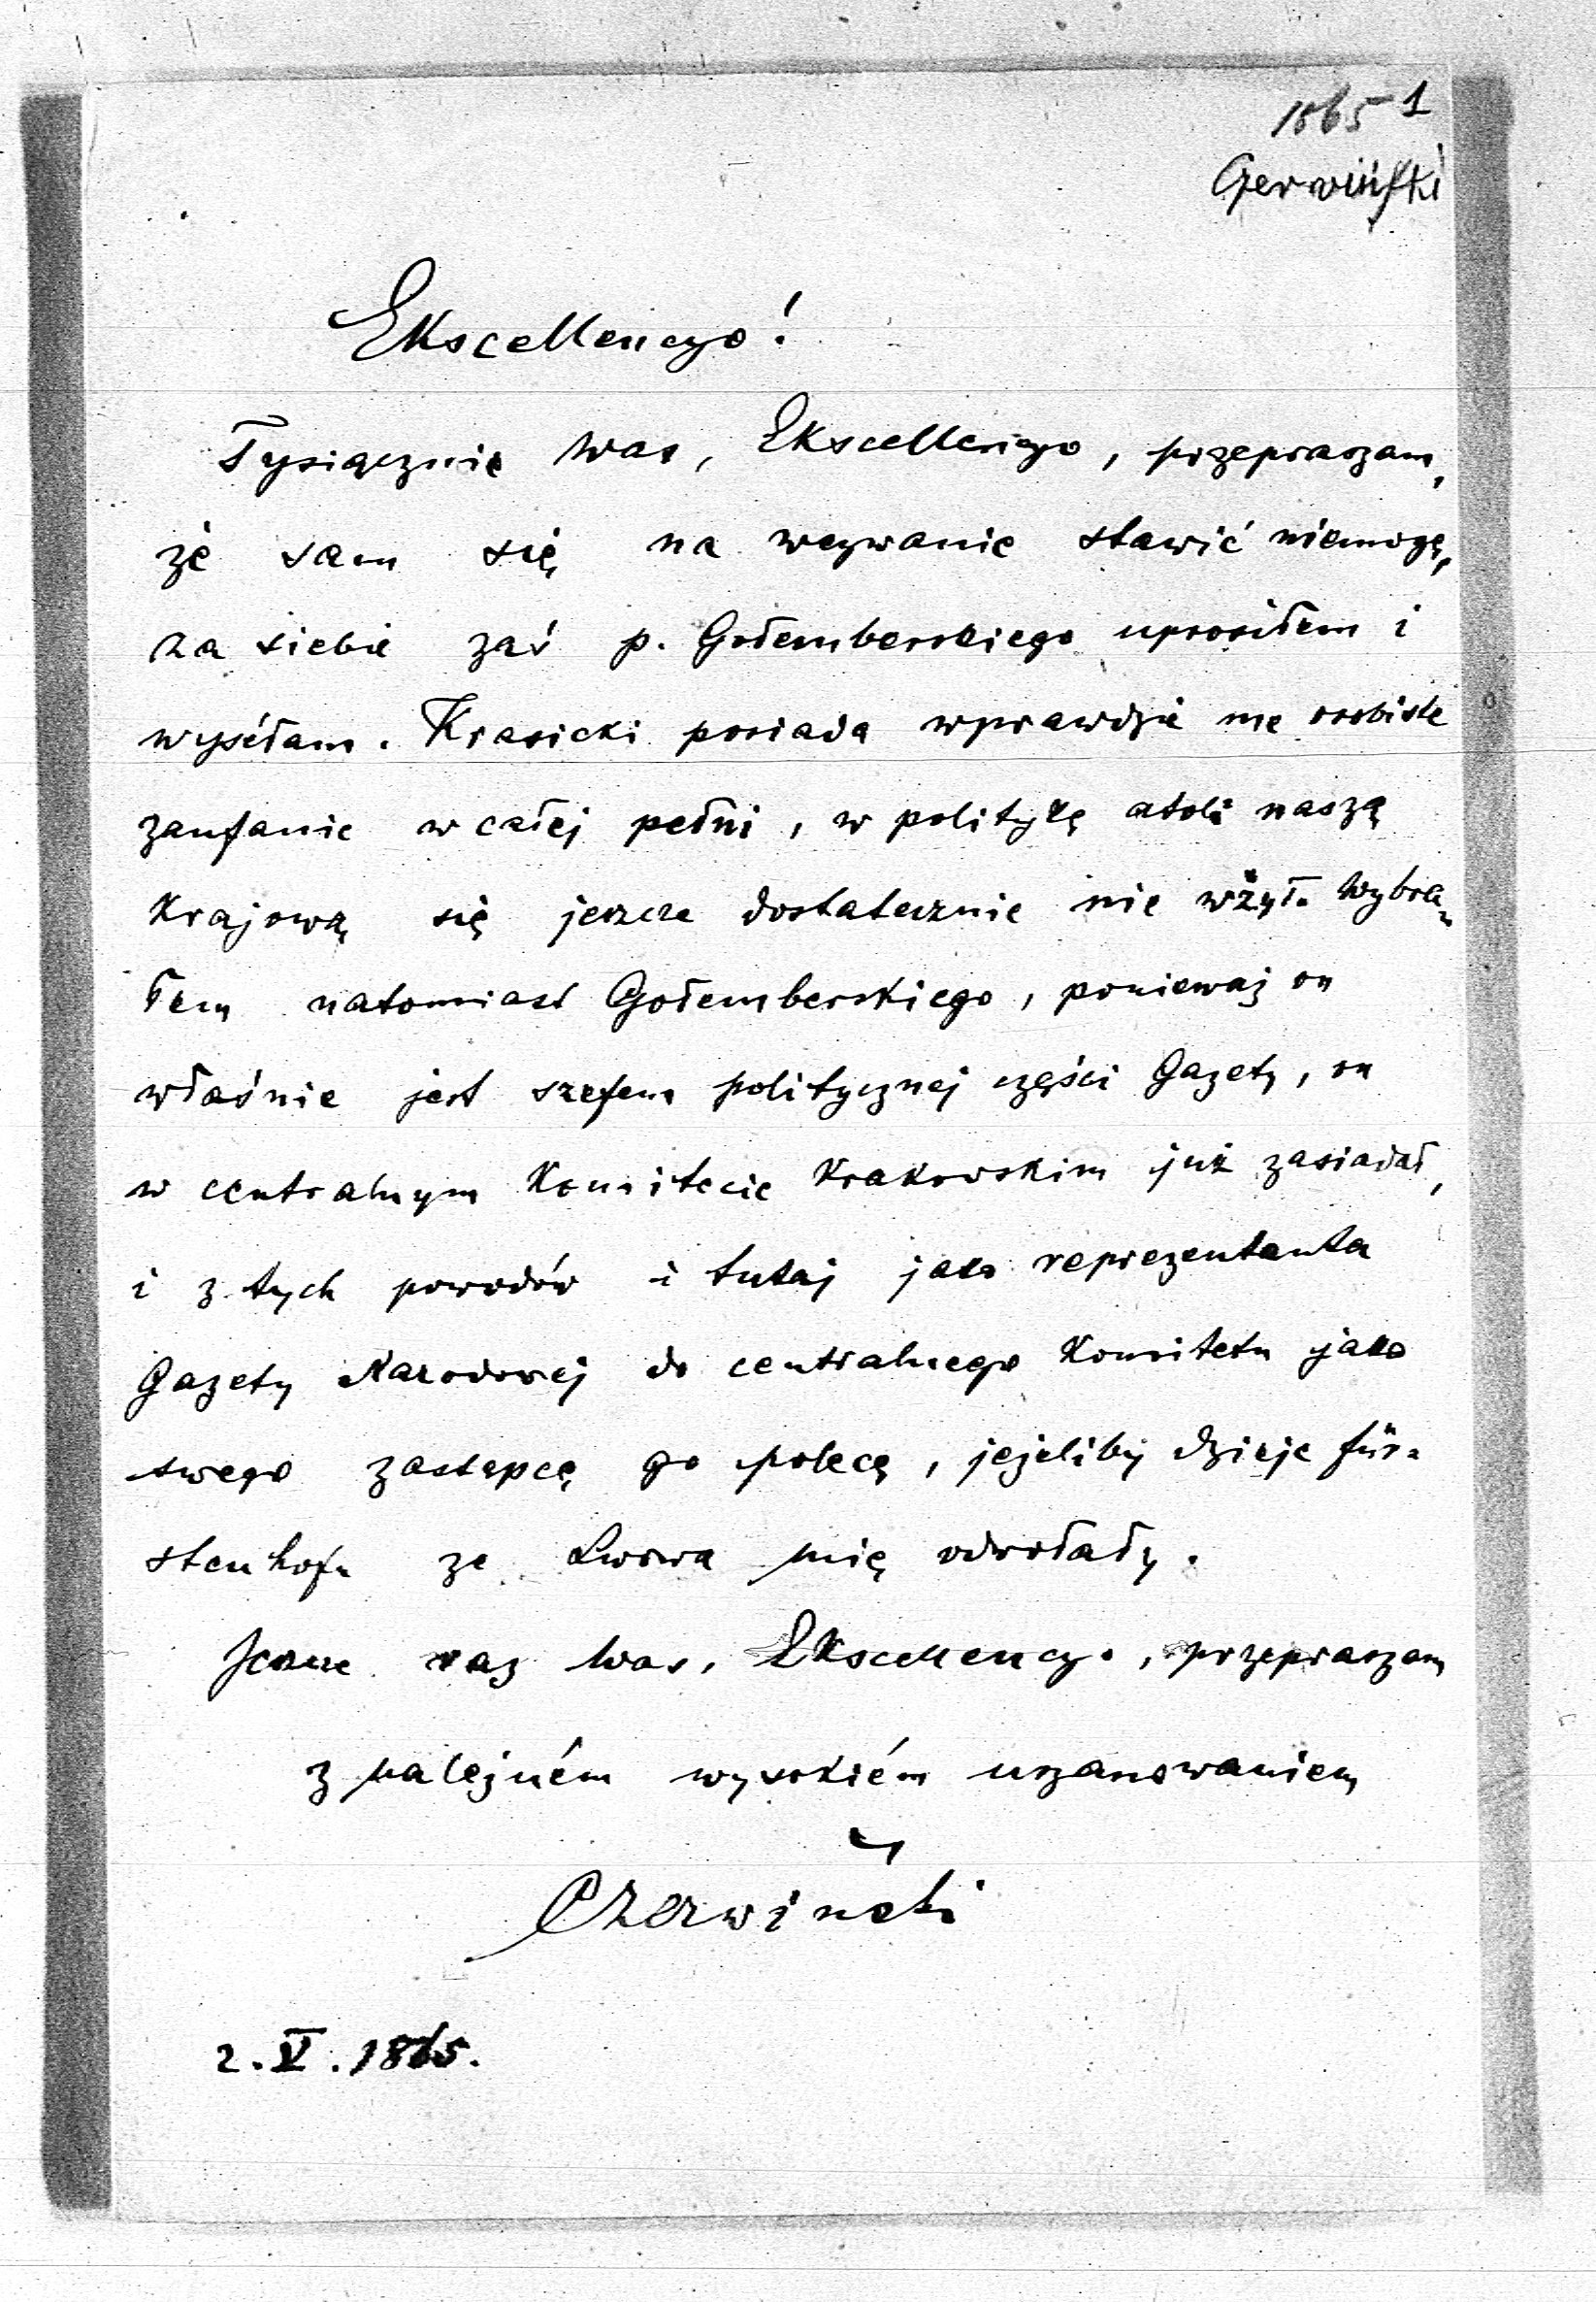 1865 1
Czerwiński
Ekscellencyo!
Tysiącznie Was, Ekscellencyo, przepraszam,
że sam się na wezwanie stawić niemogę,
za siebie zaś p. Gołemberskiego uprosiłem i
wyséłam. Krasicki posiada wprawdzie me osobiste
zaufanie w całej pełni, w politykę atoli naszą
krajową się jeszcze dostatecznie nie wżył. Wybra-
łem natomiast Gołemberskiego, ponieważ on
właśnie jest szefem politycznej części Gazety, on
w centralnym Komitecie Krakowskim już zasiadał,
i z tych powodów i tutaj jako reprezentanta
Gazety Narodowej do centralnego Komitetu jako
swego zastępcę go polecę, jeżeliby dzieje für-
stenhofu ze Lwowa mię odwołały.
Jeszcze raz Was, Ekscellencyo, przepraszam
z należném wysokiém uszanowaniem
Czerwiński
2. V. 1865.